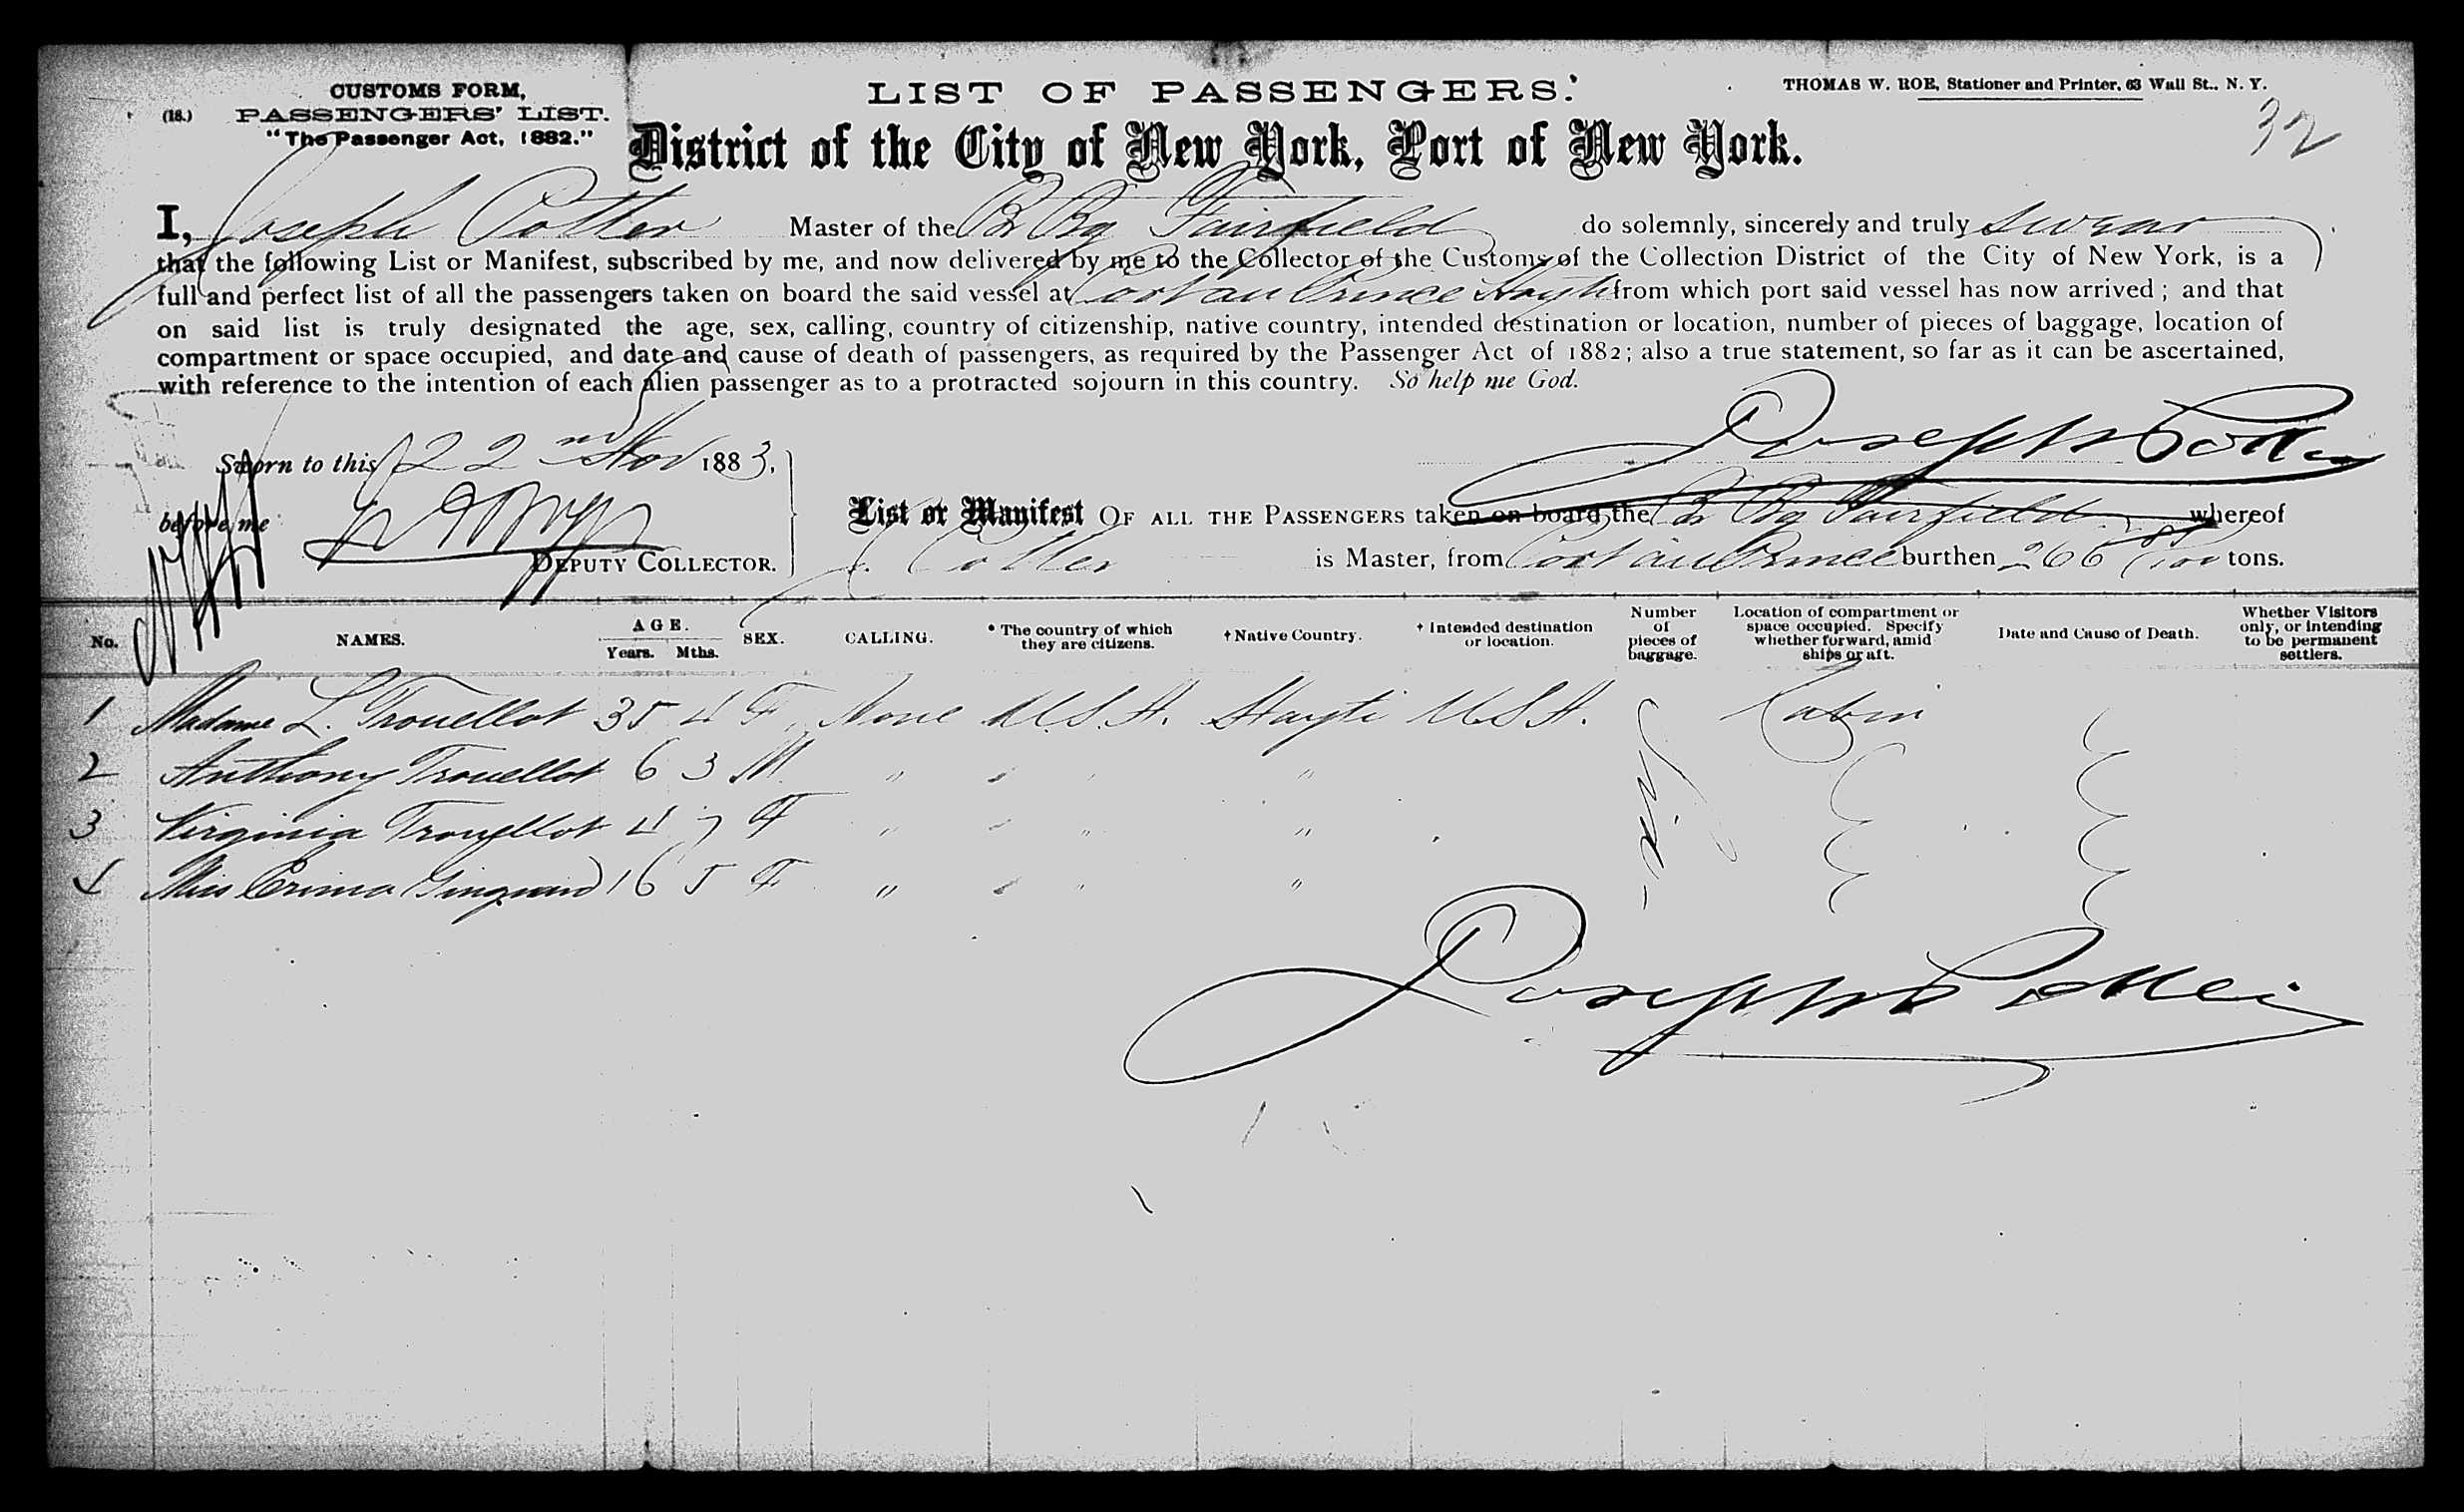 CUSTOMS FORM,
(18.) PASSENGERS' LIST.
"The Passenger Act, 1882."
LIST OF PASSENGERS.
THOMAS W. ROE, Stationer and Printer, 63 Wall St., N. Y.
32
District of the City of New York, Port of New York.
I, Joseph Potter Master of the Br Bg Fairfield do solemnly, sincerely and truly swear
that the following List or Manifest, subscribed by me, and now delivered by me to the Collector of the Customs of the Collection District of the City of New York, is a
full and perfect list of all the passengers taken on board the said vessel at Port au Prince Hayti from which port said vessel has now arrived; and that
on said list is truly designated the age, sex, calling, country of citizenship, native country, intended destination or location, number of pieces of baggage, location of
compartment or space occupied, and date and cause of death of passengers, as required by the Passenger Act of 1882; also a true statement, so far as it can be ascertained,
with reference to the intention of each alien passenger as to a protracted sojourn in this country. So help me God.
Joseph Potter
Sworn to this 22nd Nov 1883.
before me
DEPUTY COLLECTOR.
List or Manifest OF ALL THE PASSENGERS taken on board the Br Bg Fairfield whereof
J. Potter is Master, from Port au Prince burthen 266 tons.
No. NAMES. AGE. Years. Mths. SEX. CALLING. * The country of which they are citizens. † Native Country. † Intended destination or location. Number of pieces of baggage. Location of compartment or space occupied. Specify whether forward, amid ships or aft. Date and Cause of Death. Whether Visitors only, or intending to be permanent settlers.
1 Madame L. Trouellot 35 4 F None U.S.A. Hayti U.S.A. Cabin
2 Anthony Trouellot 6 3 M " " " "
3 Virginia Trouellot 4 7 F " " " "
4 Miss 16 5 F " " " "
Joseph Potter